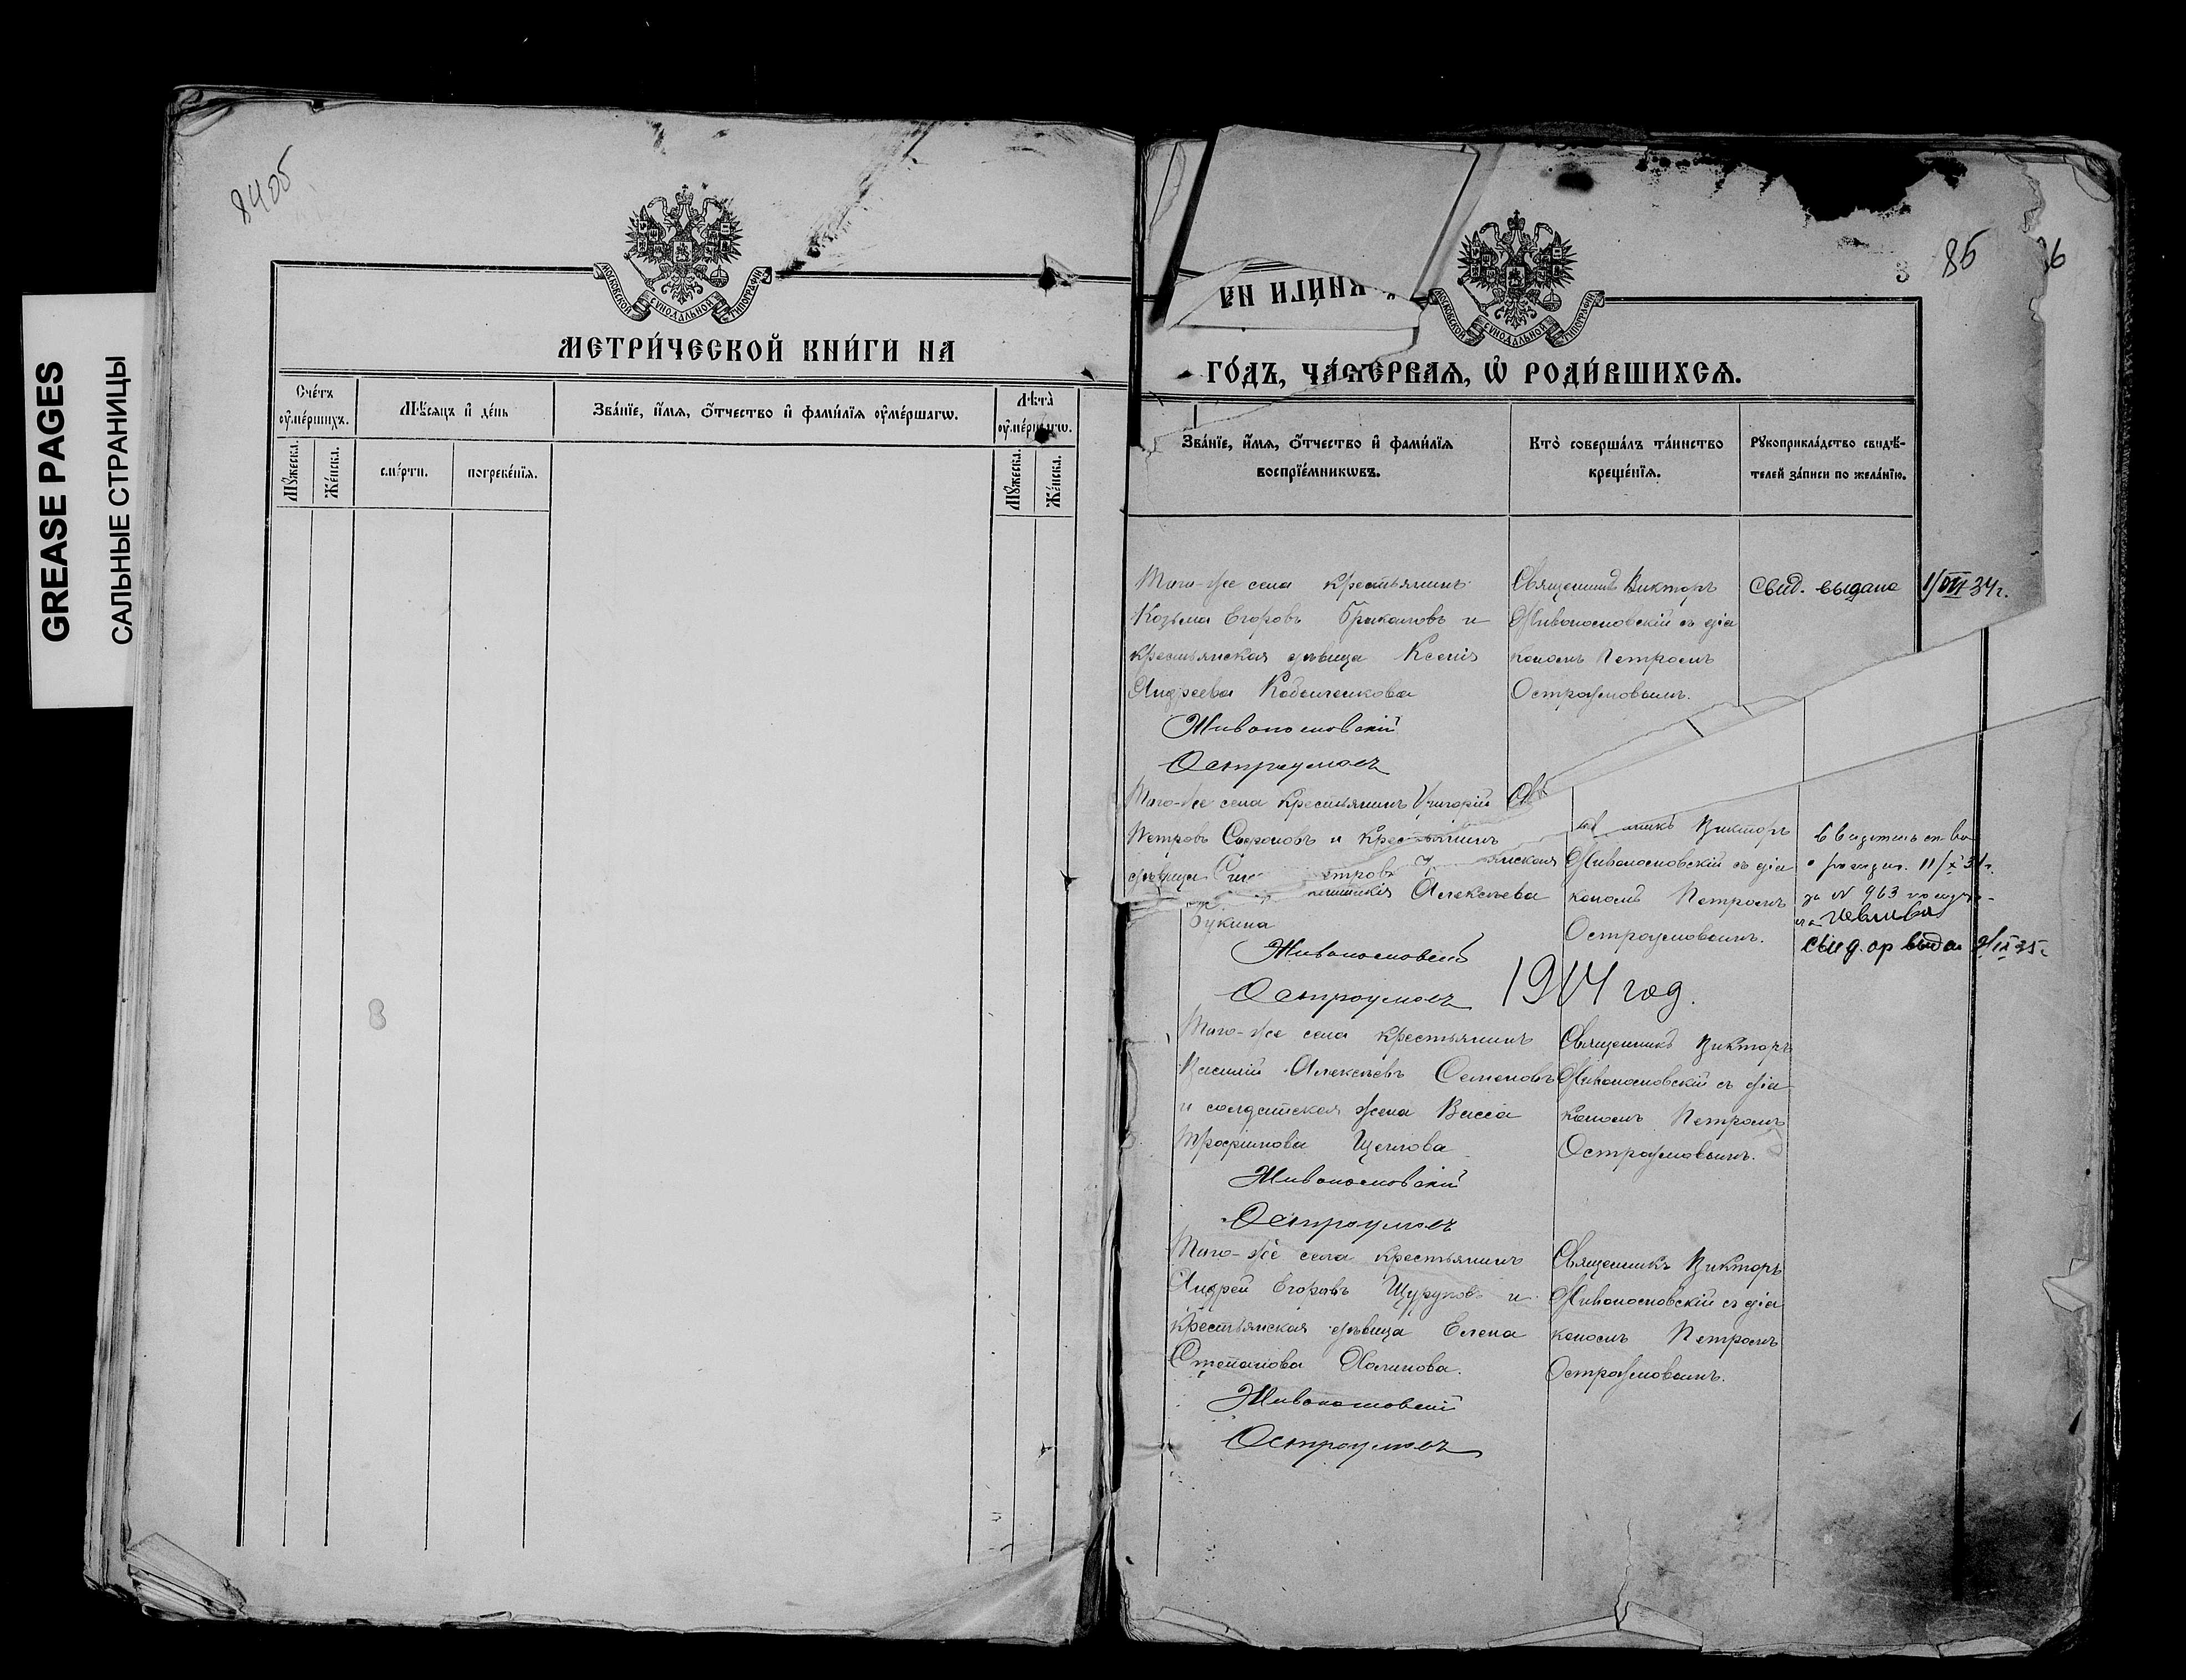 GREASE PAGES
САЛЬНЫЕ СТРАНИЦЫ
84об
МОСКОВСКОЙ СѴНОДАЛЬНОЙ ТИПОГРАФІИ
МЕТРИ́ЧЕСКОЙ КНИ́ГИ НА
Сче́тъ ᲂу҆ме́ршихъ.
Мѣ́сяцъ и҆ де́нь
Зва́нїе, и҆́мя, ѻ҆́тчество и҆ фами́лїя ᲂу҆ме́ршагѡ.
Лѣ́та ᲂу҆ме́ршагѡ.
Мꙋ́жеска.
Же́нска.
сме́рти.
погребе́нїя.
Мꙋ́жеска.
Же́нска.
КНИ́ГИ НА
3
85
МОСКОВСКОЙ СѴНОДАЛЬНОЙ ТИПОГРАФІИ
ГО́ДЪ, ЧА́ ПЕ́РВАЯ, Ѡ҆ РОДИ́ВШИХСЯ.
Зва́нїе, и҆́мя, ѻ҆́тчество и҆ фами́лїя
воспрїе́мникѡвъ.
Кто̀ соверша́лъ та́инство
креще́нїя.
Рꙋкоприкла́дство свидѣ́-
телей за́писи по жела́нїю.
Того-же села крестьянинъ
Козьма Егоровъ и
крестьянская дѣвица Ксенія
Андреева
Живоносновскій
Остроумовъ
Священникъ Викторъ
Живоносновскій съ діа
кономъ Петромъ
Остроумовымъ.
Свид. выдано 1/VII 34 г.
Того-же села крестьянинъ Григорій
Петровъ Сафоновъ и
дѣвица
Алексѣева
Букина
Живоносновскій
Остроумовъ
Викторъ
Живоносновскій съ діа
кономъ Петромъ
Остроумовымъ.
за N 963
1914 год.
Того-же села крестьянинъ
Василій Алексѣевъ Семеновъ
и солдатская жена Васса
Трофимова Щеглова
Живоносновскій
Остроумовъ
Священникъ Викторъ
Живоносновскій съ діа
кономъ Петромъ
Остроумовымъ.
Того-же села крестьянинъ
Андрей Егоровъ Щуруповъ и
крестьянская дѣвица Елена
Степанова Халинова.
Живоносновскій
Остроумовъ
Священникъ Викторъ
Живоносновскій съ діа
кономъ Петромъ
Остроумовымъ.